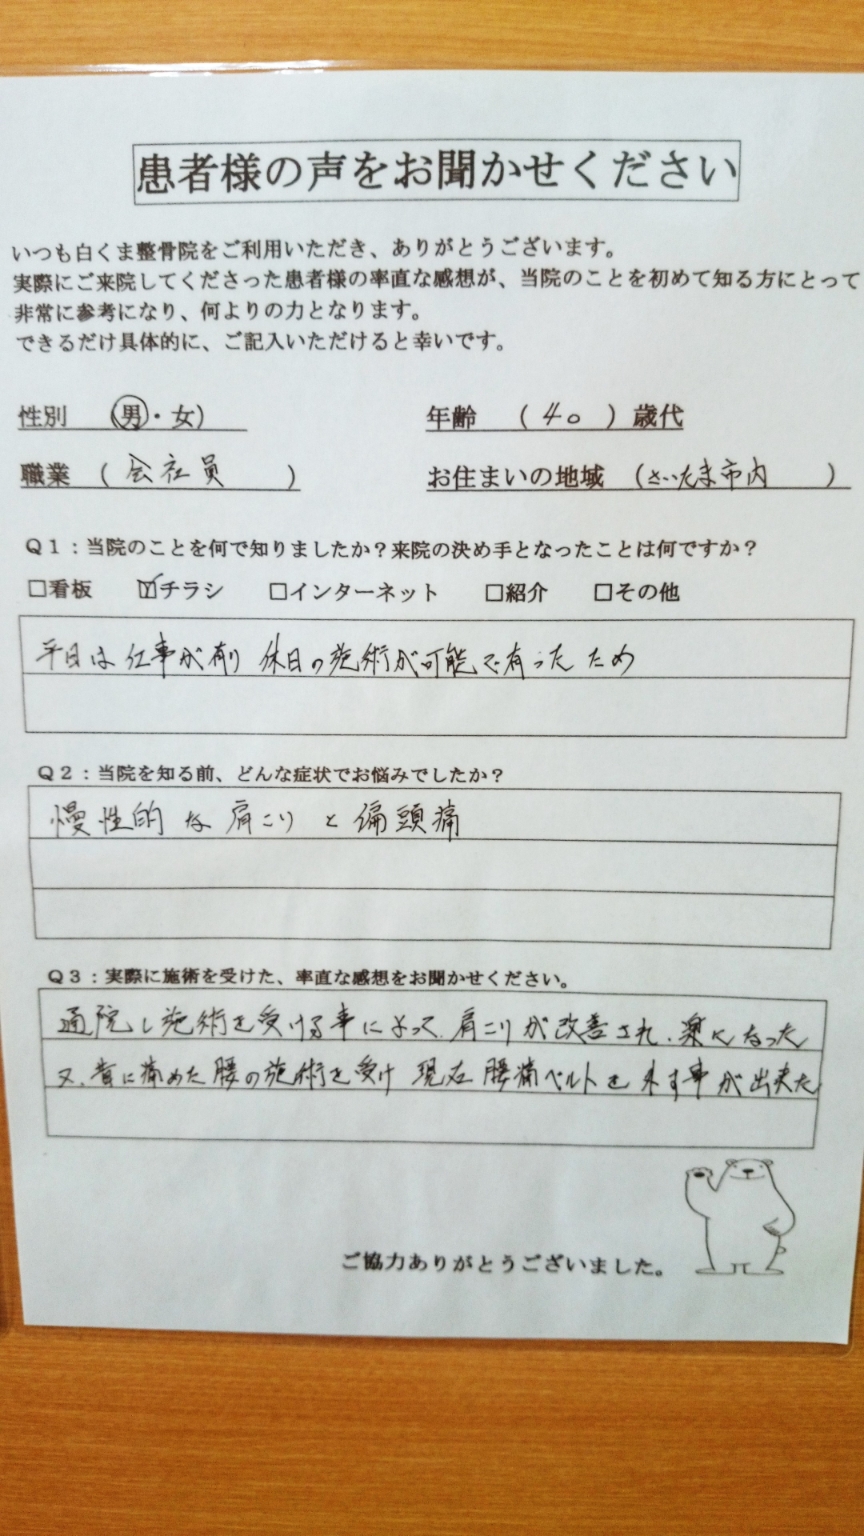 患者様の声をお聞かせください
いつも白くま整骨院をご利用いただき、ありがとうございます。
実際にご来院してくださった患者様の率直な感想が、当院のことを初めて知る方にとって
非常に参考になり、何よりの力となります。
できるだけ具体的に、ご記入いただけると幸いです。
性別 (男・女) 年齢 (40) 歳代
職業 (会社員) お住まいの地域 (さいたま市内)
Q1:当院のことを何で知りましたか?来院の決め手となったことは何ですか?
□看板 ☑チラシ □インターネット □紹介 □その他
平日は仕事が有り 休日の施術が可能で有ったため
Q2:当院を知る前、どんな症状でお悩みでしたか?
慢性的な肩こりと偏頭痛
Q3:実際に施術を受けた、率直な感想をお聞かせください。
通院し施術を受ける事によって 肩こりが改善され、楽になった
又、昔に痛めた腰の施術を受け 現在 腰痛ベルトを外す事が出来た
ご協力ありがとうございました。